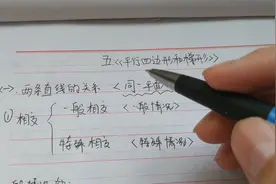 五《平行四边形和梯形》
(一)、两条直线的关系 <同一平面
(1) 相交
一般相交 <一般情况>
特殊相交 <特殊情况>